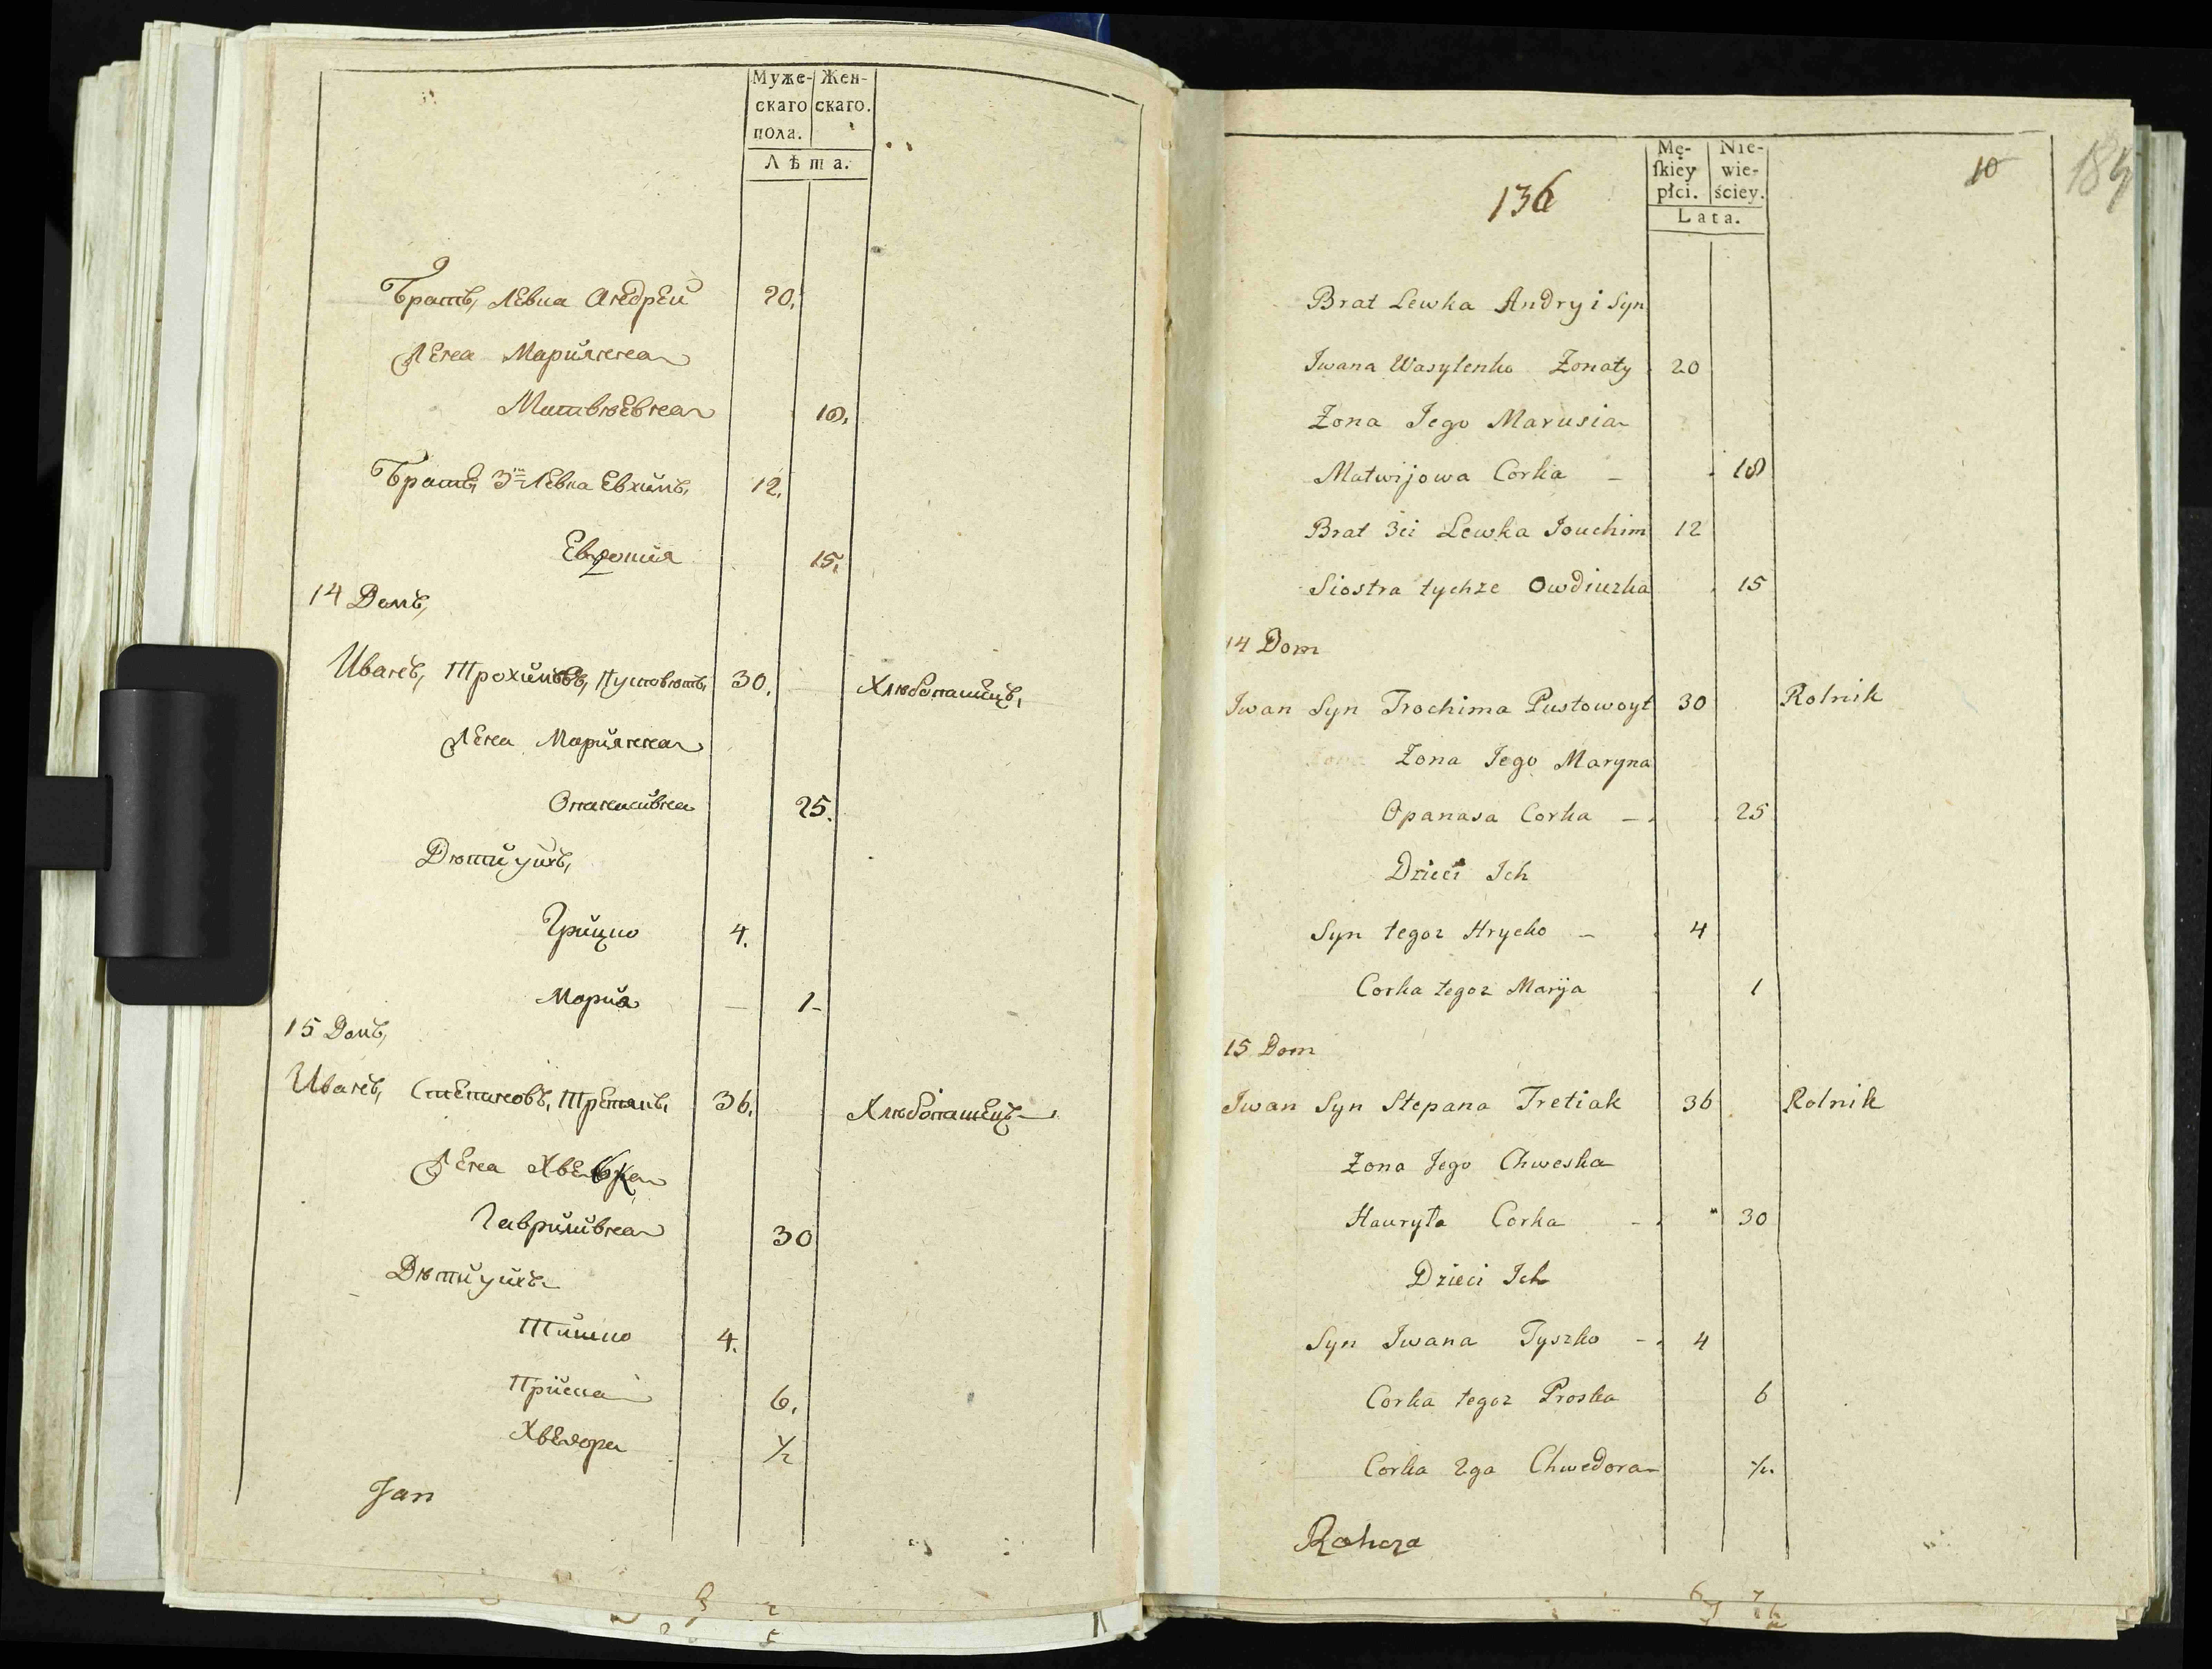 Муже- Жен-
скаго скаго.
пола.
Лѣта.
Братъ, Левка Андрей 20.
Жена Мариянна
Матвѣевна 18.
Братъ 3й Левка Евхимъ 12.
Евдокия 15.
14 Домъ,
Иванъ, Трохимовъ, Пустовѣтъ 30. Хлѣбопашецъ,
Жена Мариянна
Опанасивна 25.
Дѣти ихъ,
Грицко 4.
Мария 1
15 Домъ,
Иванъ, Степановъ, Третякъ 36. Хлѣбопашецъ
Жена
Гавриливна 30
Дѣти ихъ
Тишко 4.
Приска 6.
Хведора 1/2
Jan
136
Mę- Nie-
skiey wie-
płci. ściey.
Lata.
10
184
Brat Lewka Andryi Syn
Iwana Wasylenko Żonaty 20
Żona Jego Marusia
Matwijowa Corka 18
Brat 3ci Lewka Iouchim 12
Siostra tychże Owdiuzka 15
14 Dom
Iwan Syn Trochima Pustowoyt 30 Rolnik
Żona Jego Maryna
Opanasa Corka 25
Dzieci Ich
Syn tegoz Hrycko 4
Corka tegoz Marija 1
15 Dom
Iwan Syn Stepana Tretiak 36 Rolnik
Zona Jego Chweska
Hauryła Corka 30
Dzieci Ich
Syn Iwana Tyszko 4
Corka tegoz Proska 6
Corka 2ga Chwedora 1/2
Rohoza